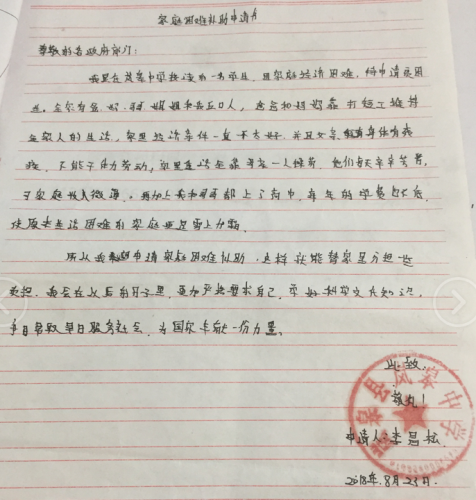 家庭困难补助申请书
尊敬的各政府部门:
我是在凤皋中学就读的一名学生,因家庭经济困难,特申请
全家有爸、妈、哥、姐和我五口人,爸爸和妈妈靠打短工维持
全家人的生活,家里经济条件一直不太好,并且父亲有
不能干体力劳动,家里生活是靠母亲一人操劳,他们每天辛辛苦苦,
家庭收入微薄。再加上我和哥哥都上了高中,每年的学费
使原本生活困难的家庭更是雪上加霜。
所以我申请家庭困难补助,这样就能替家里分担一些
负担。我会在以后的日子里,更加严格要求自己,学好科学文化知识,
争取早日服务社会,为国家奉献一份力量。
此致
敬礼!
申请人:李昌松
2018年8月23日
县凤皋中学